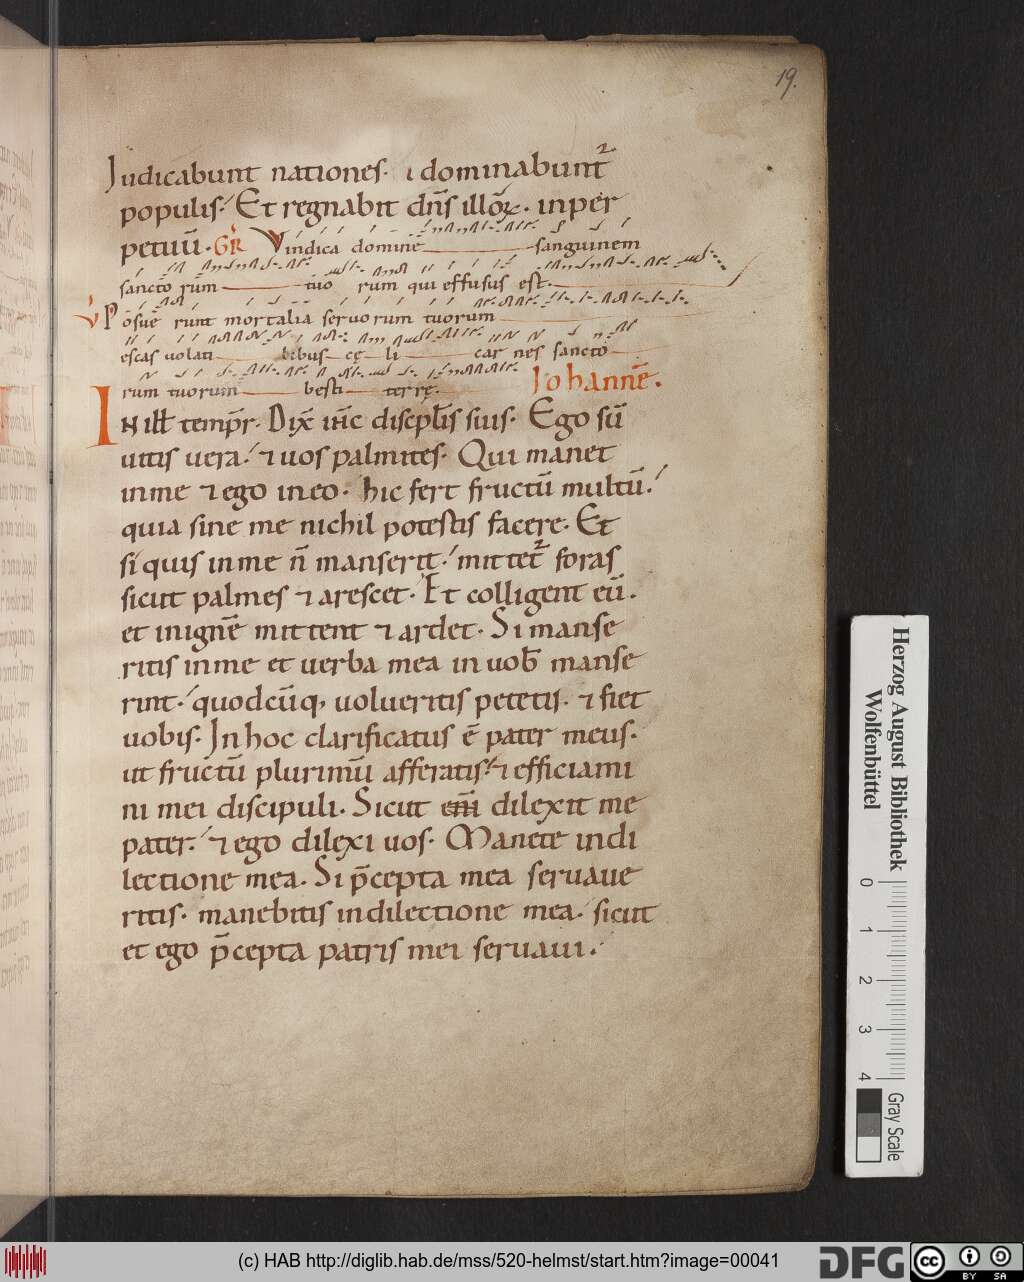 19.
Iudicabunt nationes· ⁊ dominabunt᷑
populis· Et regnabit dn̄s illoꝝ· inper
petuū· GR̄ Vindica domine sanguinem
sancto rum tuo rum qui effusus est·
V Posue runt mortalia seruorum tuorum
escas uolati bibus cę li car nes sancto
rum tuorum besti terrę·
Iohannē·
IN ill̄ temp̄r· Dix̄ ih̄c discpl̄is suis· Ego sū
uitis uera· ⁊ uos palmites· Qui manet
inme ⁊ ego ineo· hic fert fructū multū·
quia sine me nichil potestis facere· Et
si quis inme n̄ manserit· mittet᷑ foras
sicut palmes ⁊ arescet· Et colligent eū·
et inignē mittent ⁊ ardet· Si manse
ritis inme et uerba mea in uob̄ manse
rint· quodcūq, uolueritis petetis· ⁊ fiet
uobis· In hoc clarificatus ē pater meus·
ut fructū plurimū afferatis· ⁊ efficiami
ni mei discipuli· Sicut dilexit me
pater· ⁊ ego dilexi uos· Manete indi
lectione mea· Si p̄cepta mea seruaue
ritis· manebitis indilectione mea· sicut
et ego p̄cepta patris mei seruaui·
Herzog August Bibliothek
Wolfenbüttel
0 1 2 3 4
Gray Scale
(c) HAB http://diglib.hab.de/mss/520-helmst/start.htm?image=00041
DFG
cc BY SA